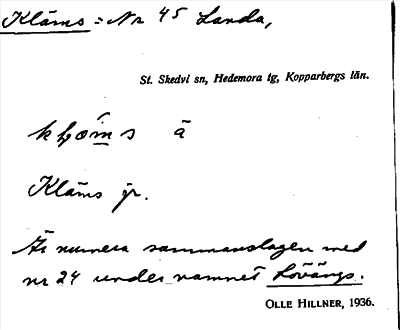 Kläms = Nr 45 Landa,
St. Skedvi sn, Hedemora tg, Kopparbergs län.
ä
Kläms gr.
Är numera sammanslagen med
nr 24 under namnet Lövängs.
OLLE HILLNER, 1936.